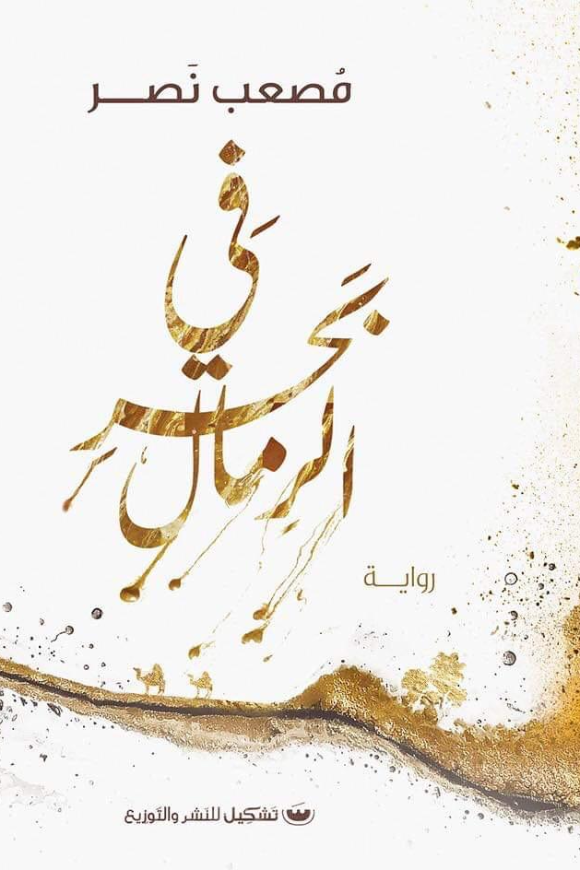 مُصعب نَصر
في
بَحرِ
الرمال
رواية
تَشكِيل للنَشر والتَوزِيع